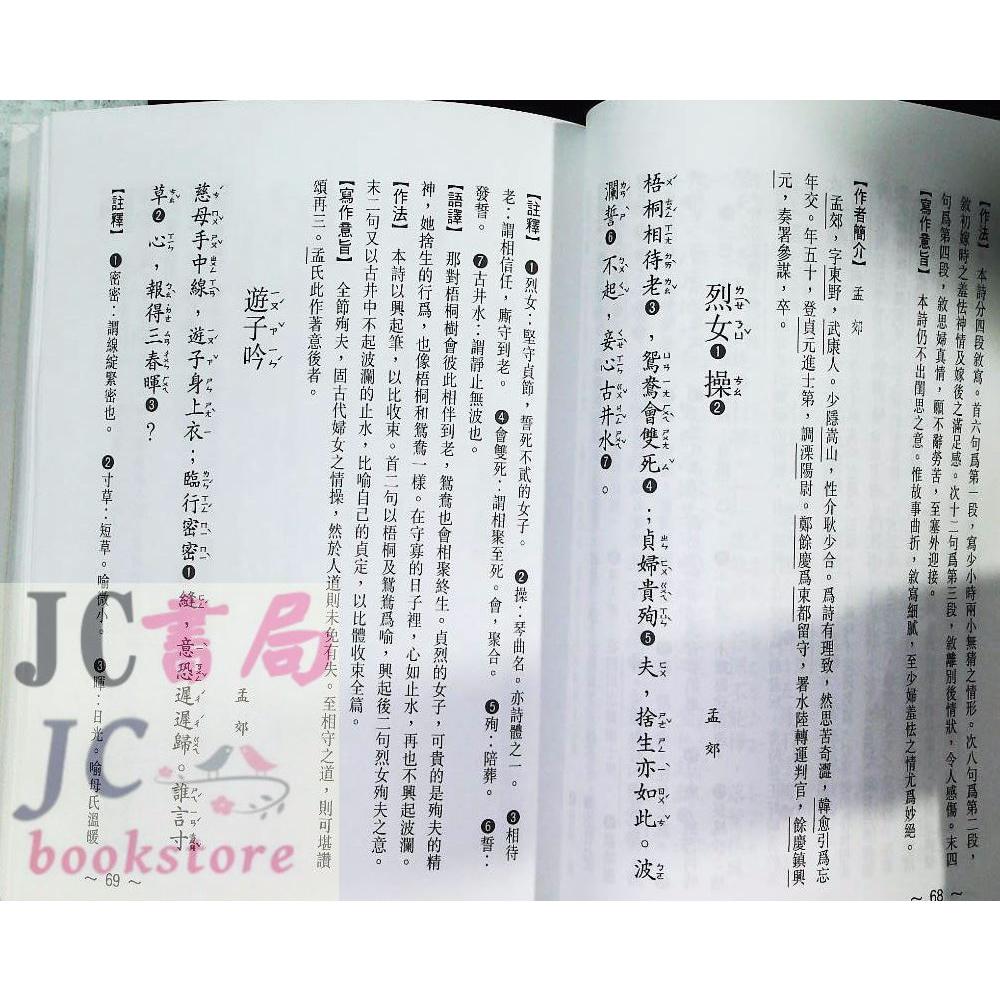 【作法】　本詩分四段敘寫。首六句爲第一段，寫少小時兩小無猜之情形。次八句爲第二段，
敘初嫁時之羞怯神情及嫁後之滿足感。次十二句爲第三段，敘離別後情狀，令人感傷。末四
句爲第四段，敘思婦真情，願不辭勞苦，至塞外迎接。
【寫作意旨】　本詩仍不出閨思之意。惟故事曲折，敘寫細膩，至少婦羞怯之情尤爲妙絕。
烈女❶操❷
孟郊
【作者簡介】　孟　郊
孟郊，字東野，武康人。少隱嵩山，性介耿少合。爲詩有理致，然思苦奇澀，韓愈引爲忘
年交。年五十，登貞元進士第，調溧陽尉。鄭餘慶爲東都留守，署水陸轉運判官，餘慶鎮興
元，奏署參謀，卒。
梧桐相待老❸，鴛鴦會雙死❹；貞婦貴殉❺夫，捨生亦如此。波
瀾誓❻不起，妾心古井水❼。
~ 68 ~
【註釋】　❶烈女：堅守貞節，誓死不貳的女子。　❷操：琴曲名。亦詩體之一。　❸相待
老：謂相信任，廝守到老。　❹會雙死：謂相聚至死。會，聚合。　❺殉：陪葬。　❻誓：
發誓。　❼古井水：謂靜止無波也。
【語譯】　那對梧桐樹會彼此相伴到老，鴛鴦也會相聚終生。貞烈的女子，可貴的是殉夫的精
神，她捨生的行爲，也像梧桐和鴛鴦一樣。在守寡的日子裡，心如止水，再也不興起波瀾。
【作法】　本詩以興起筆，以比收束。首二句以梧桐及鴛鴦爲喻，興起後二句烈女殉夫之意。
末二句又以古井中不起波瀾的止水，比喻自己的貞定，以比體收束全篇。
【寫作意旨】　全節殉夫，固古代婦女之情操，然於人道則未免有失。至相守之道，則可堪讚
頌再三。孟氏此作著意後者。
遊子吟
孟郊
慈母手中線，遊子身上衣；臨行密密❶縫，意恐遲遲歸。誰言寸
草❷心，報得三春暉❸？
【註釋】　❶密密：謂線綻緊密也。　❷寸草：短草。喻微小。　❸暉：日光。喻母氏溫暖
~ 69 ~
JC書局
JC
bookstore